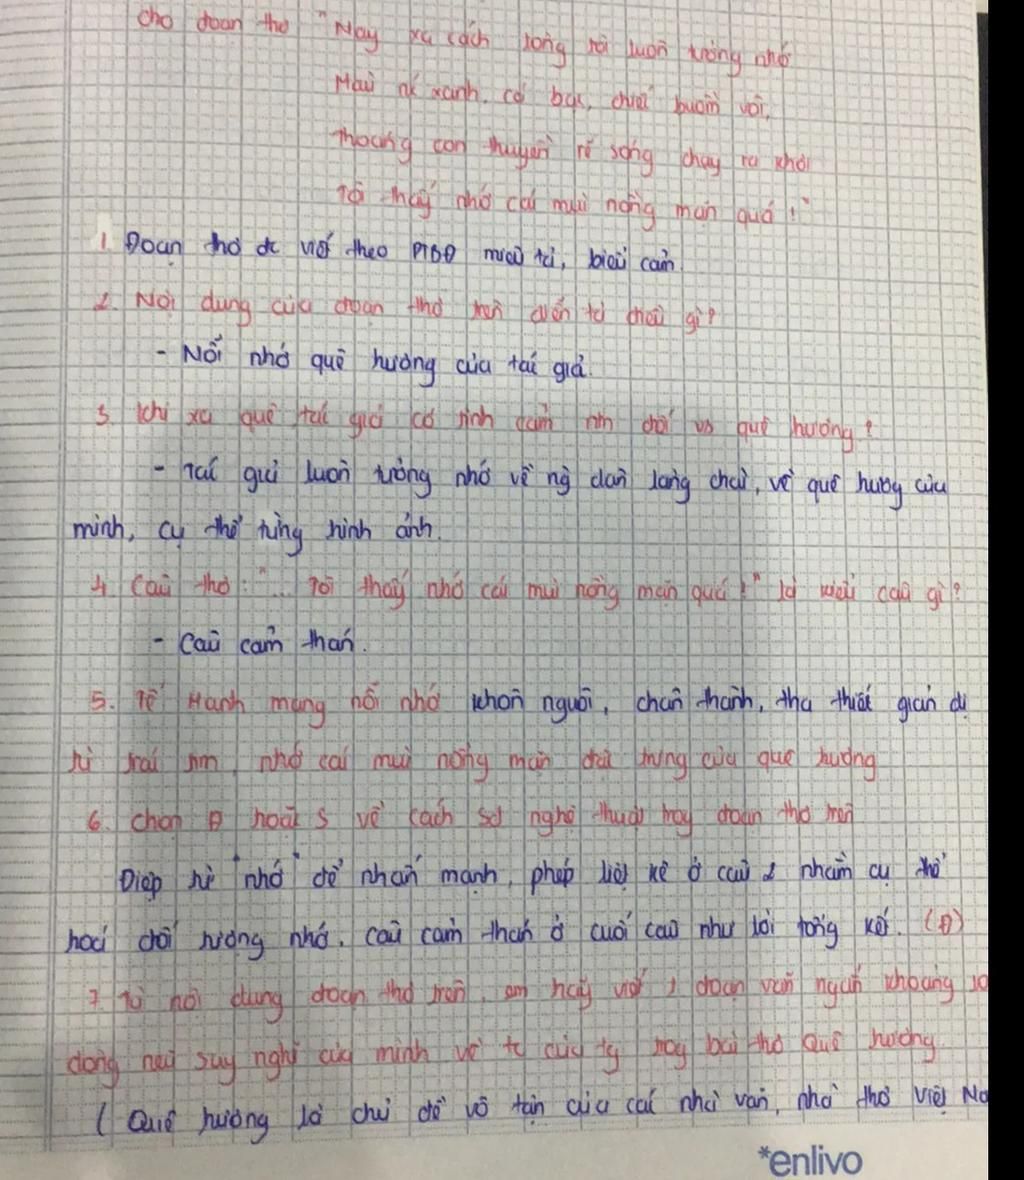 cho đoạn thơ "Nay xa cách lòng tôi luôn tưởng nhớ
Màu nc xanh, cá bạc, chiếc buồm vôi,
Thoáng con thuyền rẽ sóng chạy ra khơi
Tôi thấy nhớ cái mùi nồng mặn quá !"
1. Đoạn thơ đc viết theo PTBĐ miêu tả, biểu cảm.
2. Nội dung của đoạn thơ trên diễn tả điều gì?
- Nỗi nhớ quê hương của tác giả.
3. Khi xa quê tác giả có tình cảm ntn đối vs quê hương?
- Tác giả luôn tưởng nhớ về ng dân làng chài, về quê hương của
mình, cụ thể từng hình ảnh.
4. Câu thơ: "... Tôi thấy nhớ cái mùi nồng mặn quá!" là kiểu câu gì?
- Câu cảm thán.
5. Tế Hanh mang nỗi nhớ khôn nguôi, chân thành, tha thiết giản dị
từ trái tim, nhớ cái mùi nồng mặn đặc trưng của quê hương
6. chọn Đ hoặc S về cách sd nghệ thuật trog đoạn thơ trên
Điệp từ "nhớ" để nhấn mạnh, phép liệt kê ở câu 2 nhằm cụ thể
hoá đối tượng nhớ. câu cảm thán ở cuối câu như lời tổng kết. (Đ)
7. Từ nội dung đoạn thơ trên, em hãy viết 1 đoạn văn ngắn khoảng 10
dòng nêu suy nghĩ của mình về tc của tg trog bài thơ Quê hương.
( Quê hương là chủ đề vô tận của các nhà văn, nhà thơ Việt Na
*enlivo